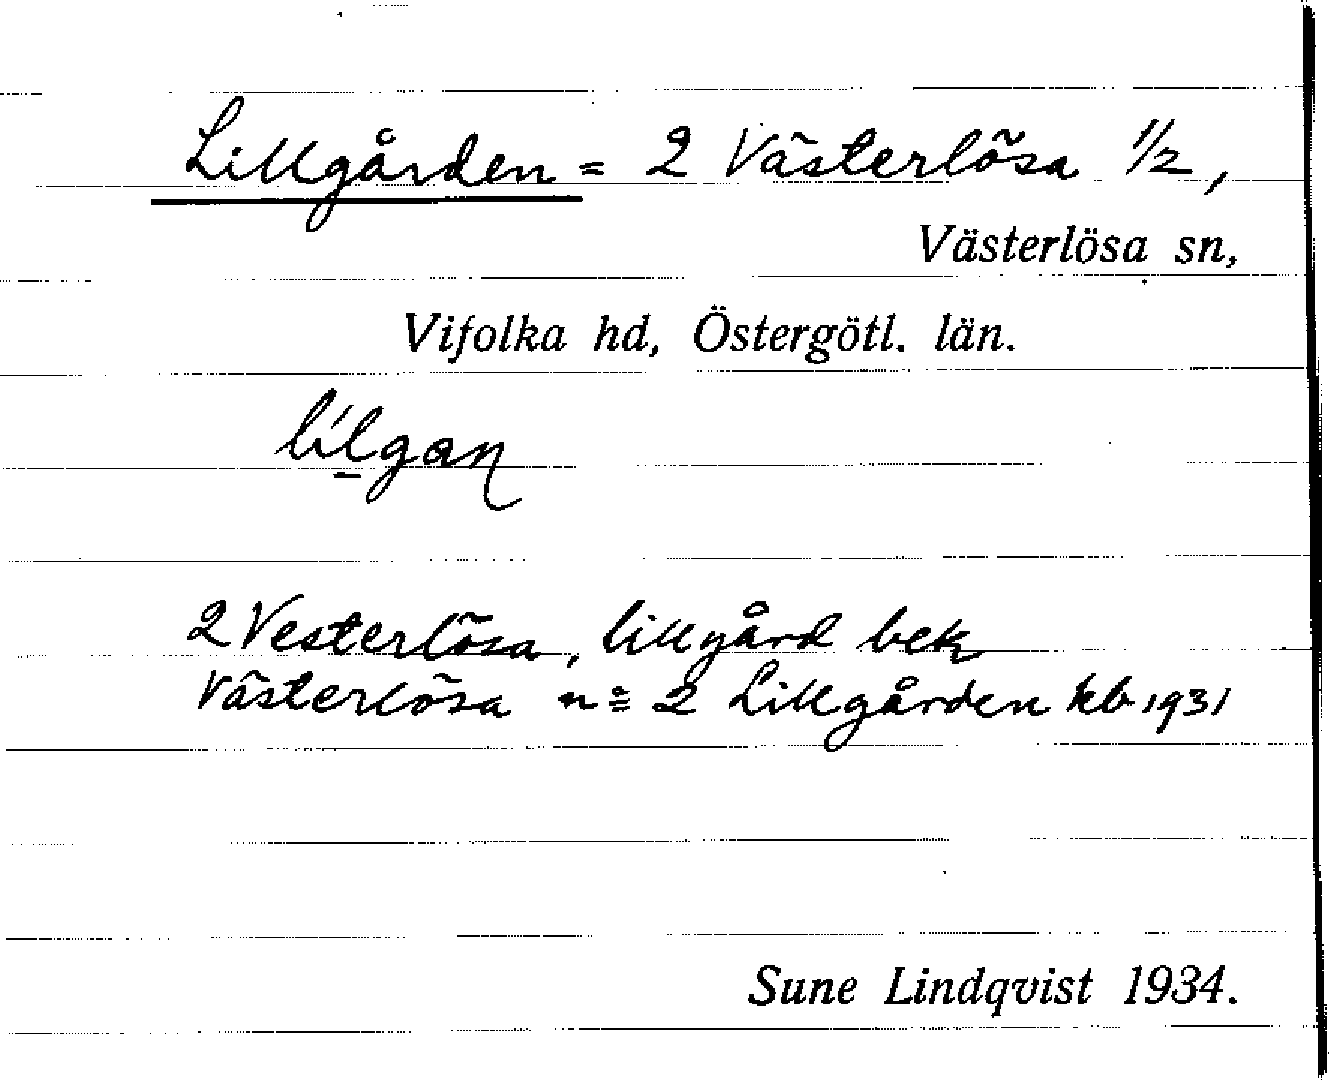 Lillgården = 2 Västerlösa 1/2,
Västerlösa sn,
Vifolka hd, Östergötl. län.
lílgaɳ
2 Vesterlösa, lillgård bek
Västerlösa n:o 2 Lillgården kb 1931
Sune Lindqvist 1934.